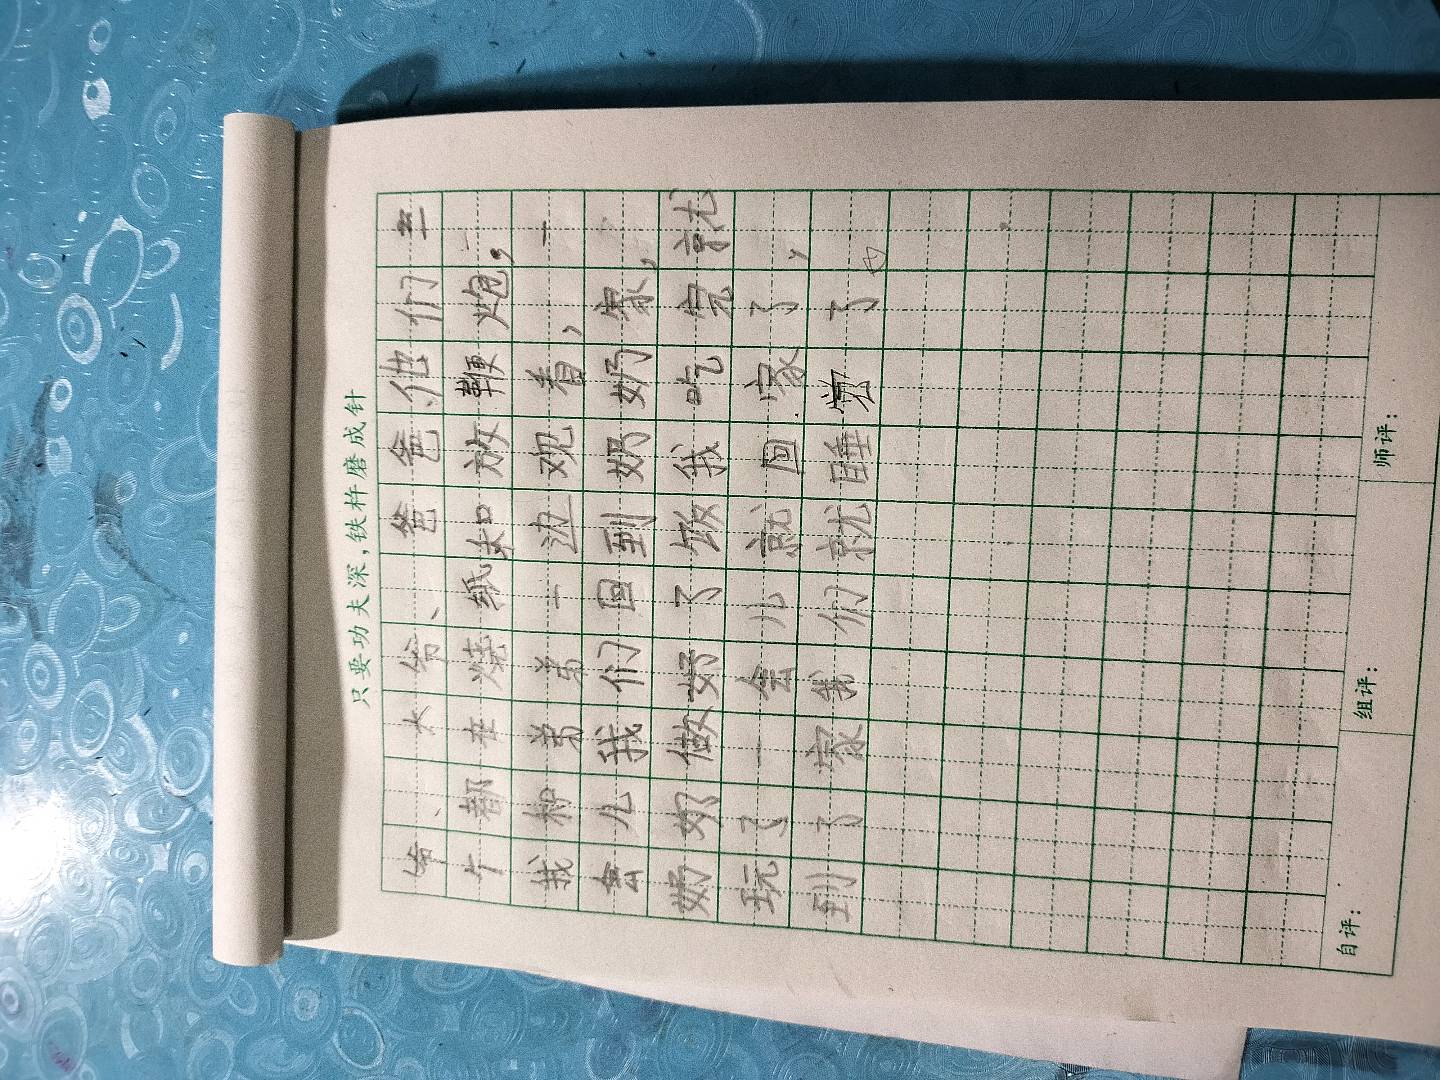 只要功夫深,铁杵磨成针
爷、大爷、爸爸、他们三
个都在烧纸和放鞭炮。
我和弟弟一边观看,一
会儿我们回到奶奶家,
奶奶做好了饭我吃完就
玩了一会儿就回家了,
到了家我们就睡觉了
自评： 组评： 师评：